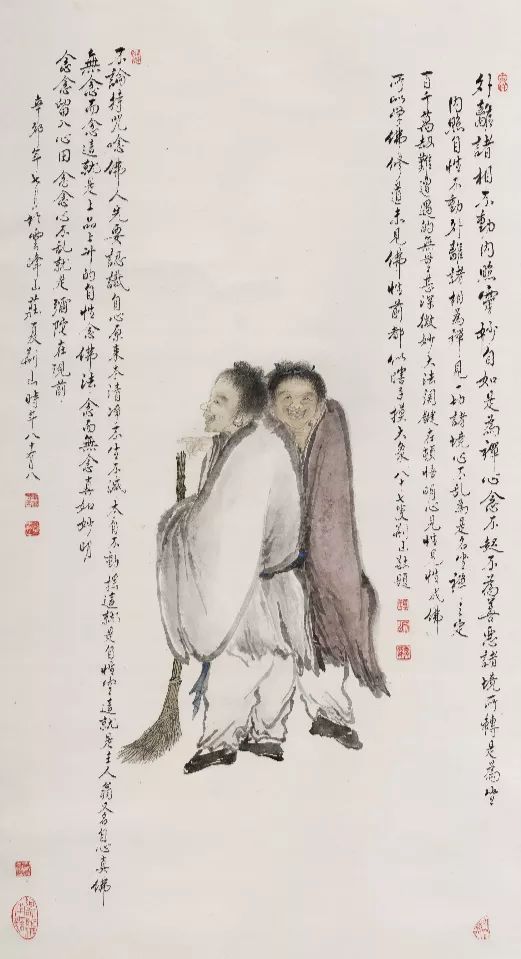 外離諸相不動內照靈妙自如是為禪心念不起不為善惡諸境所轉是為坐
內照自性不動外離諸相為禪見一切諸境心不乱為是名坐禪之定
百千萬劫難遭遇的無上甚深微妙大法関鍵在頓悟明心見性見性成佛
所以學佛修道未見佛性前都似瞎子摸大象八十七叟荆山敬題
不論持咒唸佛人先要認識自心原来本清净不生不滅本自不動摇這就是自性堂這就是主人翁又名自心真佛
無念而念這就是上品上升的自性念佛法念而無念真如妙明
念念留入心田念念心不乱就是彌陀在現前
辛卯年七月於雲峰山莊夏荆山時年八十有八